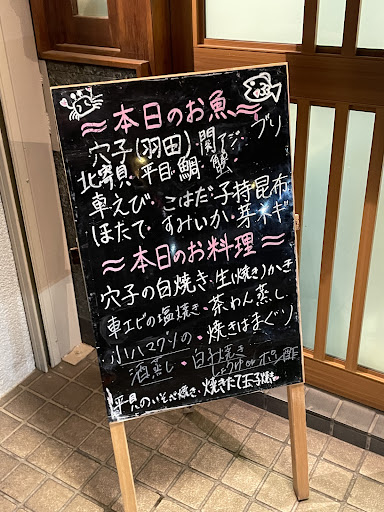 本日のお魚
穴子(羽田)・関アジ・ブリ
北寄貝・平目・鯛・蟹
車えび・こはだ・子持昆布
ほたて・すみいか・芽ネギ
本日のお料理
穴子の白焼き・生(焼き)かき
車エビの塩焼き・茶わん蒸し
小ハマグリの・焼きはまぐり
酒蒸し・白子焼き
しょうゆorポン酢
平貝のいそべ焼き・焼きたて玉子焼